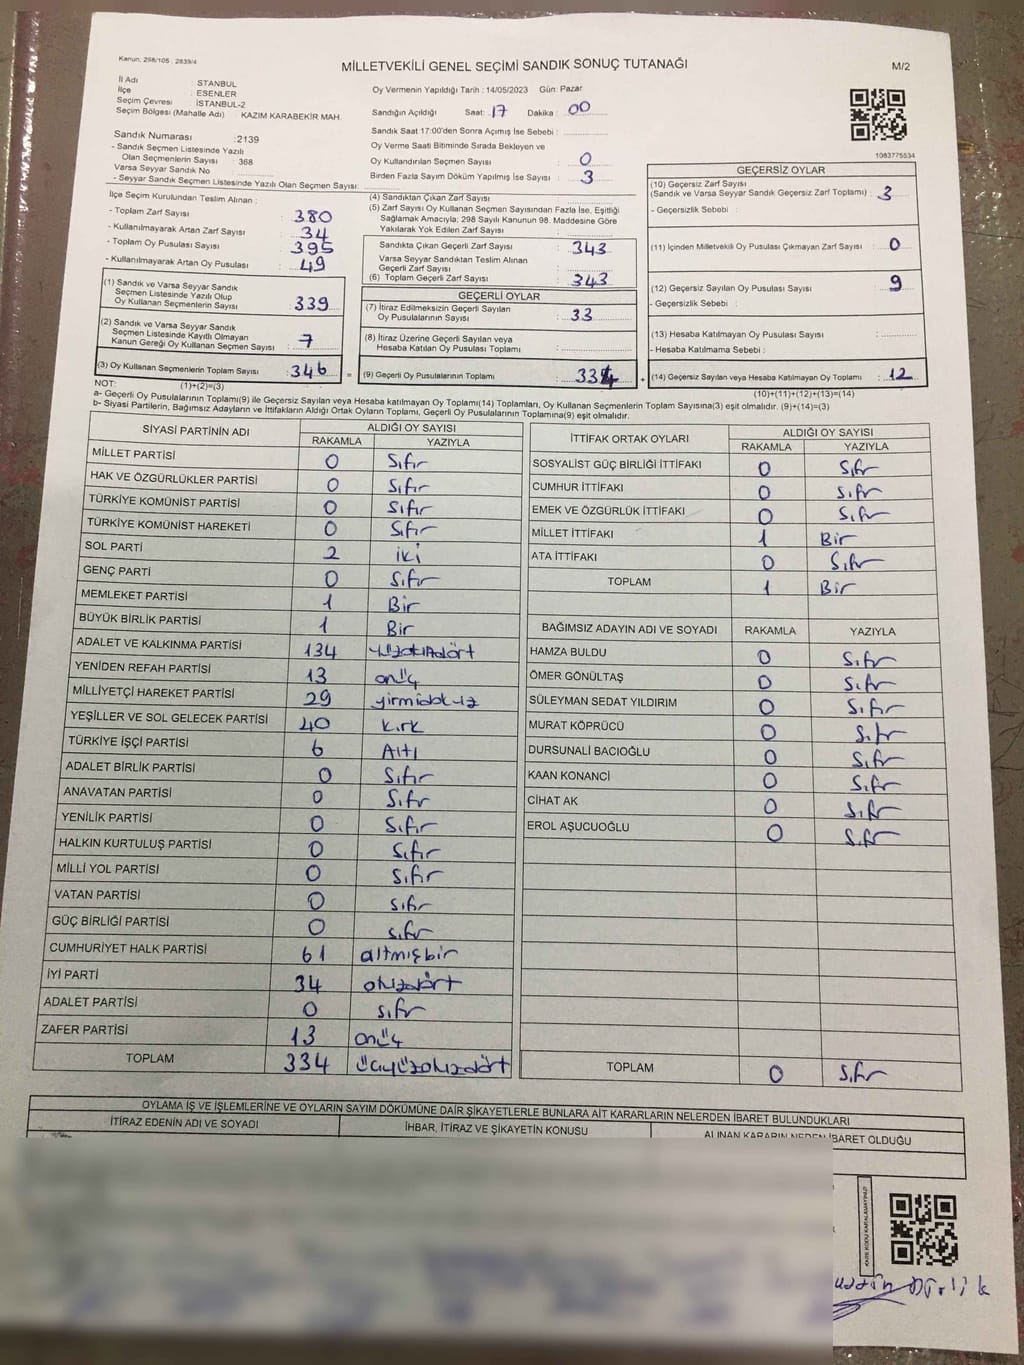 Kanun: 298/105 , 2839/4
MİLLETVEKİLİ GENEL SEÇİMİ SANDIK SONUÇ TUTANAĞI
M/2
İl Adı : İSTANBUL
İlçe : ESENLER
Seçim Çevresi : İSTANBUL-2
Seçim Bölgesi (Mahalle Adı) : KAZIM KARABEKİR MAH.
Oy Vermenin Yapıldığı Tarih : 14/05/2023 Gün: Pazar
Sandığın Açıldığı Saat: 17 Dakika : 00
Sandık Saat 17:00'den Sonra Açımış İse Sebebi :
Oy Verme Saati Bitiminde Sırada Bekleyen ve
Oy Kullandırılan Seçmen Sayısı : 0
Birden Fazla Sayım Döküm Yapılmış İse Sayısı : 3
1083775534
Sandık Numarası :2139
- Sandık Seçmen Listesinde Yazılı
Olan Seçmenlerin Sayısı : 368
Varsa Seyyar Sandık No
- Seyyar Sandık Seçmen Listesinde Yazılı Olan Seçmen Sayısı:
İlçe Seçim Kurulundan Teslim Alınan ;
- Toplam Zarf Sayısı : 380
- Kullanılmayarak Artan Zarf Sayısı : 34
- Toplam Oy Pusulası Sayısı : 395
- Kullanılmayarak Artan Oy Pusulası : 49
(1) Sandık ve Varsa Seyyar Sandık
Seçmen Listesinde Yazılı Olup
Oy Kullanan Seçmenlerin Sayısı : 339
(2) Sandık ve Varsa Seyyar Sandık
Seçmen Listesinde Kayıtlı Olmayan
Kanun Gereği Oy Kullanan Seçmen Sayısı : 7
(3) Oy Kullanan Seçmenlerin Toplam Sayısı : 346
(1)+(2)=(3)
(4) Sandıktan Çıkan Zarf Sayısı
(5) Zarf Sayısı Oy Kullanan Seçmen Sayısından Fazla İse, Eşitliği
Sağlamak Amacıyla; 298 Sayılı Kanunun 98. Maddesine Göre
Yakılarak Yok Edilen Zarf Sayısı :
Sandıkta Çıkan Geçerli Zarf Sayısı : 343
Varsa Seyyar Sandıktan Teslim Alınan
Geçerli Zarf Sayısı :
(6) Toplam Geçerli Zarf Sayısı : 343
GEÇERLİ OYLAR
(7) İtiraz Edilmeksizin Geçerli Sayılan
Oy Pusulalarının Sayısı : 33
(8) İtiraz Üzerine Geçerli Sayılan veya
Hesaba Katılan Oy Pusulası Toplamı :
= (9) Geçerli Oy Pusulalarının Toplamı : 334
GEÇERSİZ OYLAR
(10) Geçersiz Zarf Sayısı
(Sandık ve Varsa Seyyar Sandık Geçersiz Zarf Toplamı) : 3
- Geçersizlik Sebebi :
(11) İçinden Milletvekili Oy Pusulası Çıkmayan Zarf Sayısı : 0
(12) Geçersiz Sayılan Oy Pusulası Sayısı : 9
- Geçersizlik Sebebi :
(13) Hesaba Katılmayan Oy Pusulası Sayısı :
- Hesaba Katılmama Sebebi :
+ (14) Geçersiz Sayılan veya Hesaba Katılmayan Oy Toplamı : 12
(10)+(11)+(12)+(13)=(14)
NOT:
a- Geçerli Oy Pusulalarının Toplamı(9) ile Geçersiz Sayılan veya Hesaba Katılmayan Oy Toplamı(14) Toplamları, Oy Kullanan Seçmenlerin Toplam Sayısına(3) eşit olmalıdır. (9)+(14)=(3)
b- Siyasi Partilerin, Bağımsız Adayların ve İttifakların Aldığı Ortak Oyların Toplamı, Geçerli Oy Pusulalarının Toplamına(9) eşit olmalıdır.
SİYASİ PARTİNİN ADI ALDIĞI OY SAYISI
RAKAMLA YAZIYLA
MİLLET PARTİSİ 0 Sıfır
HAK VE ÖZGÜRLÜKLER PARTİSİ 0 Sıfır
TÜRKİYE KOMÜNİST PARTİSİ 0 Sıfır
TÜRKİYE KOMÜNİST HAREKETİ 0 Sıfır
SOL PARTİ 2 iki
GENÇ PARTİ 0 Sıfır
MEMLEKET PARTİSİ 1 Bir
BÜYÜK BİRLİK PARTİSİ 1 Bir
ADALET VE KALKINMA PARTİSİ 134
YENİDEN REFAH PARTİSİ 13 onüç
MİLLİYETÇİ HAREKET PARTİSİ 29 yirmidokuz
YEŞİLLER VE SOL GELECEK PARTİSİ 40 kırk
TÜRKİYE İŞÇİ PARTİSİ 6 Altı
ADALET BİRLİK PARTİSİ 0 Sıfır
ANAVATAN PARTİSİ 0 Sıfır
YENİLİK PARTİSİ 0 Sıfır
HALKIN KURTULUŞ PARTİSİ 0 Sıfır
MİLLİ YOL PARTİSİ 0 Sıfır
VATAN PARTİSİ 0 Sıfır
GÜÇ BİRLİĞİ PARTİSİ 0 Sıfır
CUMHURİYET HALK PARTİSİ 61 altmışbir
İYİ PARTİ 34 otuzdört
ADALET PARTİSİ 0 sıfır
ZAFER PARTİSİ 13 onüç
TOPLAM 334 üçyüzotuzdört
İTTİFAK ORTAK OYLARI ALDIĞI OY SAYISI
RAKAMLA YAZIYLA
SOSYALİST GÜÇ BİRLİĞİ İTTİFAKI 0 Sıfır
CUMHUR İTTİFAKI 0 Sıfır
EMEK VE ÖZGÜRLÜK İTTİFAKI 0 Sıfır
MİLLET İTTİFAKI 1 Bir
ATA İTTİFAKI 0 Sıfır
TOPLAM 1 Bir
BAĞIMSIZ ADAYIN ADI VE SOYADI RAKAMLA YAZIYLA
HAMZA BULDU 0 Sıfır
ÖMER GÖNÜLTAŞ 0 Sıfır
SÜLEYMAN SEDAT YILDIRIM 0 Sıfır
MURAT KÖPRÜCÜ 0 Sıfır
DURSUNALİ BACIOĞLU 0 Sıfır
KAAN KONANCİ 0 Sıfır
CİHAT AK 0 Sıfır
EROL AŞUCUOĞLU 0 Sıfır
TOPLAM 0 Sıfır
OYLAMA İŞ VE İŞLEMLERİNE VE OYLARIN SAYIM DÖKÜMÜNE DAİR ŞİKAYETLERLE BUNLARA AİT KARARLARIN NELERDEN İBARET BULUNDUKLARI
İTİRAZ EDENİN ADI VE SOYADI İHBAR, İTİRAZ VE ŞİKAYETİN KONUSU ALINAN KARARIN NEDEN İBARET OLDUĞU
KARE KODU KARALAMAYINIZ!